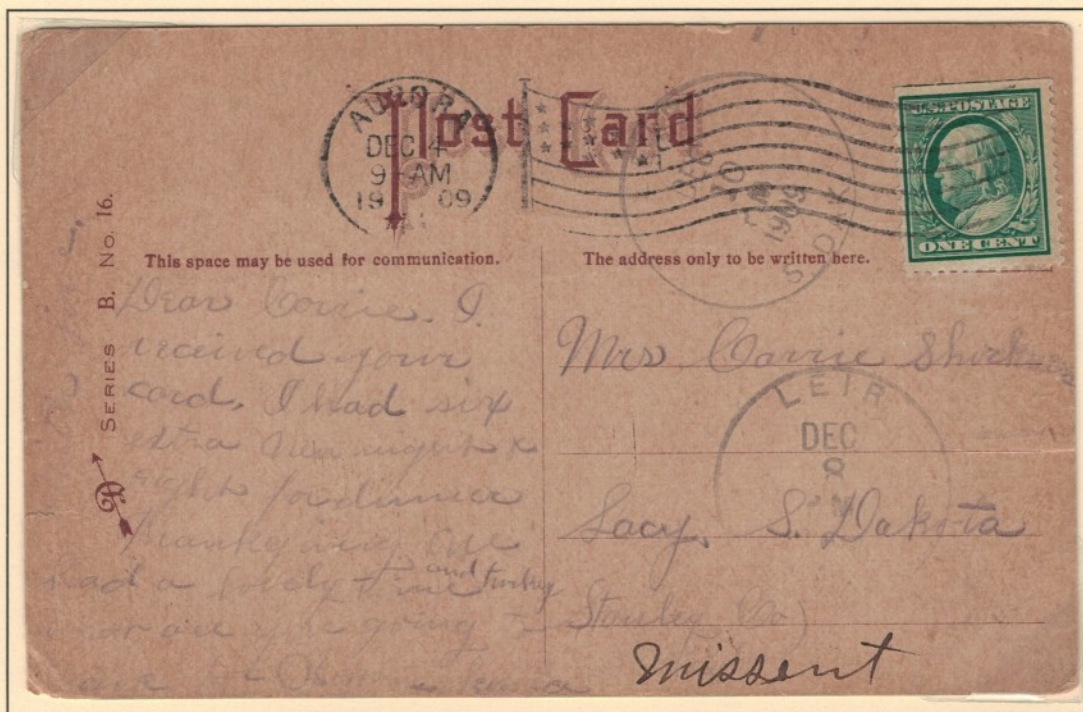 Post Card
AURORA
DEC 14
9-AM
19 09
DEC
10
1909
S. DAK
U.S. POSTAGE
ONE CENT
This space may be used for communication.
The address only to be written here.
SERIES B. No. 16.
Dear Carrie. I
received your
card, I had six
extra
eight for dinner
Thanksgiving. We
had a lovely time and turkey
are you going
Mrs Carrie
LEIR
DEC
8
Lacy, S. Dakota
Stanley Co)
missent